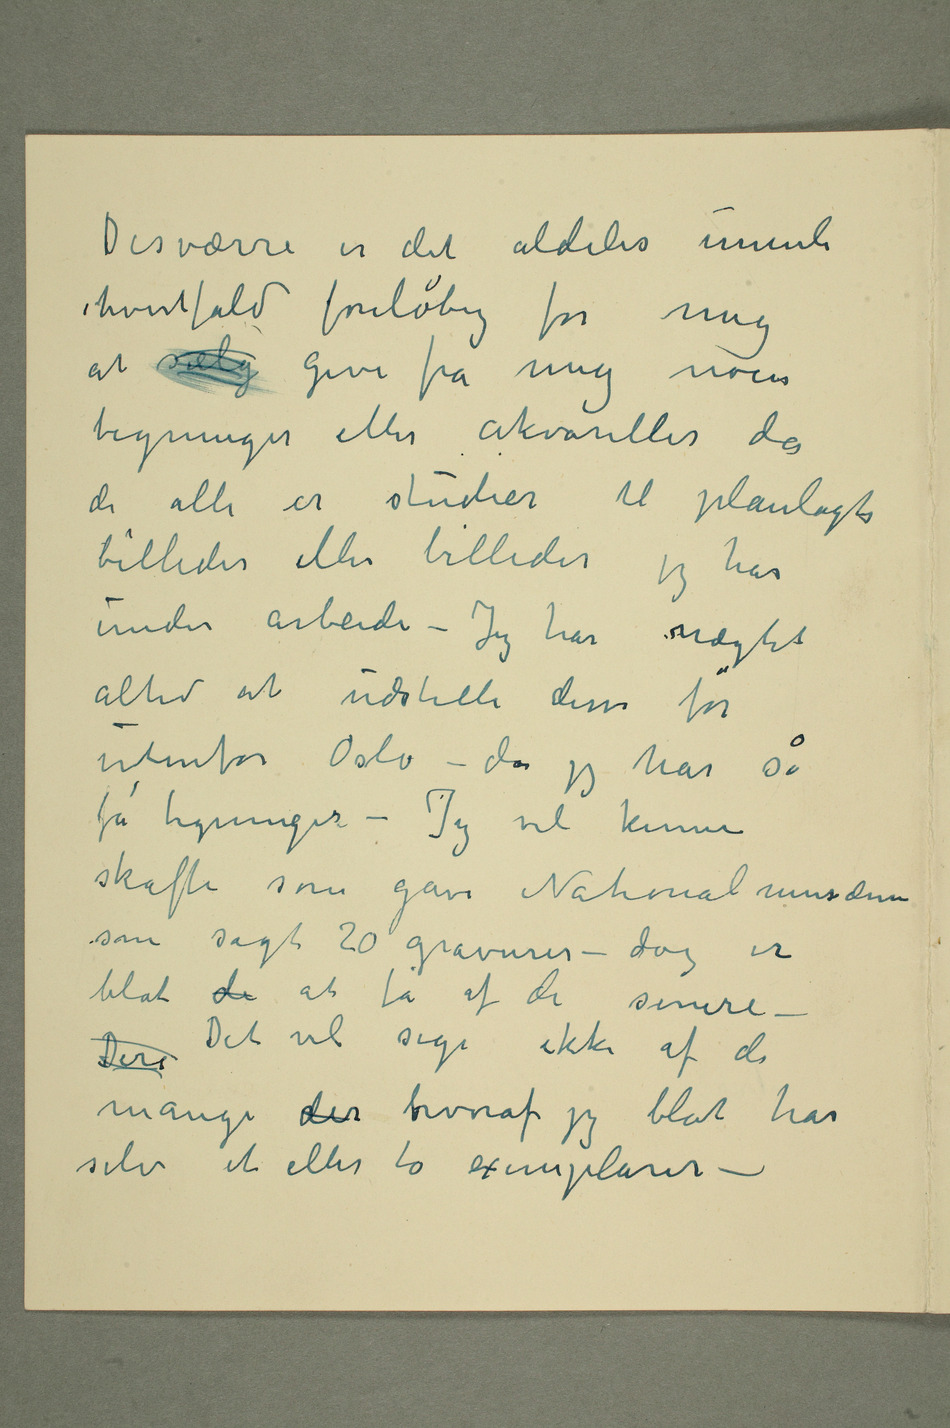 Desværre er det aldeles umuli
ihvertfald foreløbig for mig
at sælg give fra mig noen
tegninger eller akvareller da
de alle er studier til planlagte
billeder eller billeder jeg har
under arbeide – Jeg har nægtet
altid at udstille dem før
utenfor Oslo – da jeg har så
få tegninger – Jeg vil kunne
skaffe som gave Nationalmusæum
som sagt 20 gravurer – dog er
blat de at få af de senere –
Dere Det vil sige ikke af de
mange der hvoraf jeg blat har
selv et eller to exemplarer –